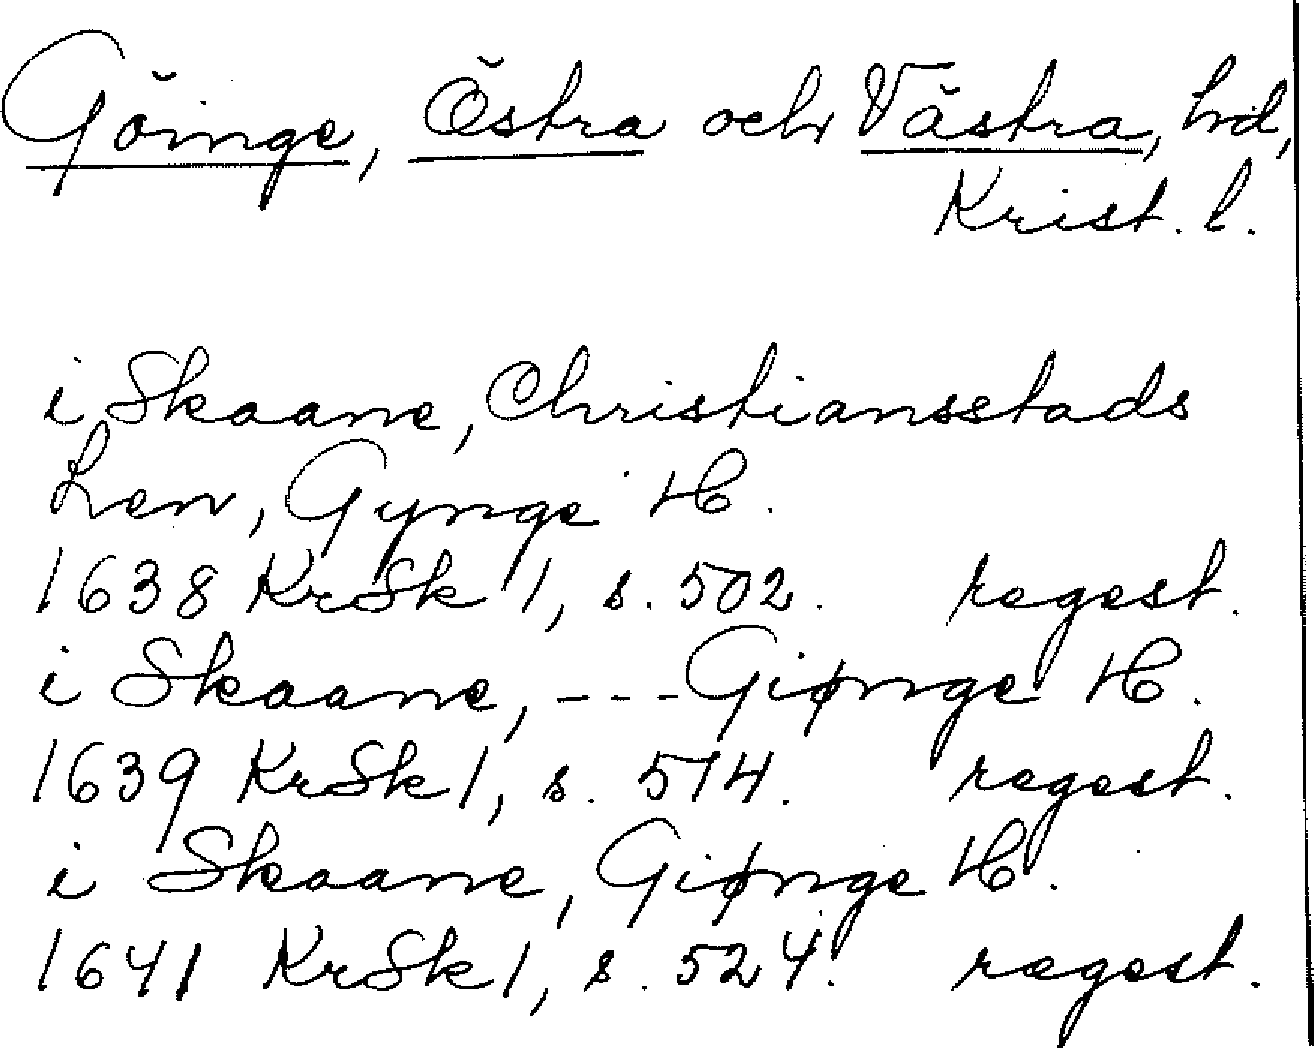 Göinge, Östra och Västra, hd,
Krist. l.
i Skaane, Christiansstads
Len, Gynge H.
1638 KrSk 1, s. 502. regest.
i Skaane, --- Giønge H.
1639 KrSk 1, s. 514. regest.
i Skaane, Giønge H.
1641 KrSk 1, s. 524. regest.